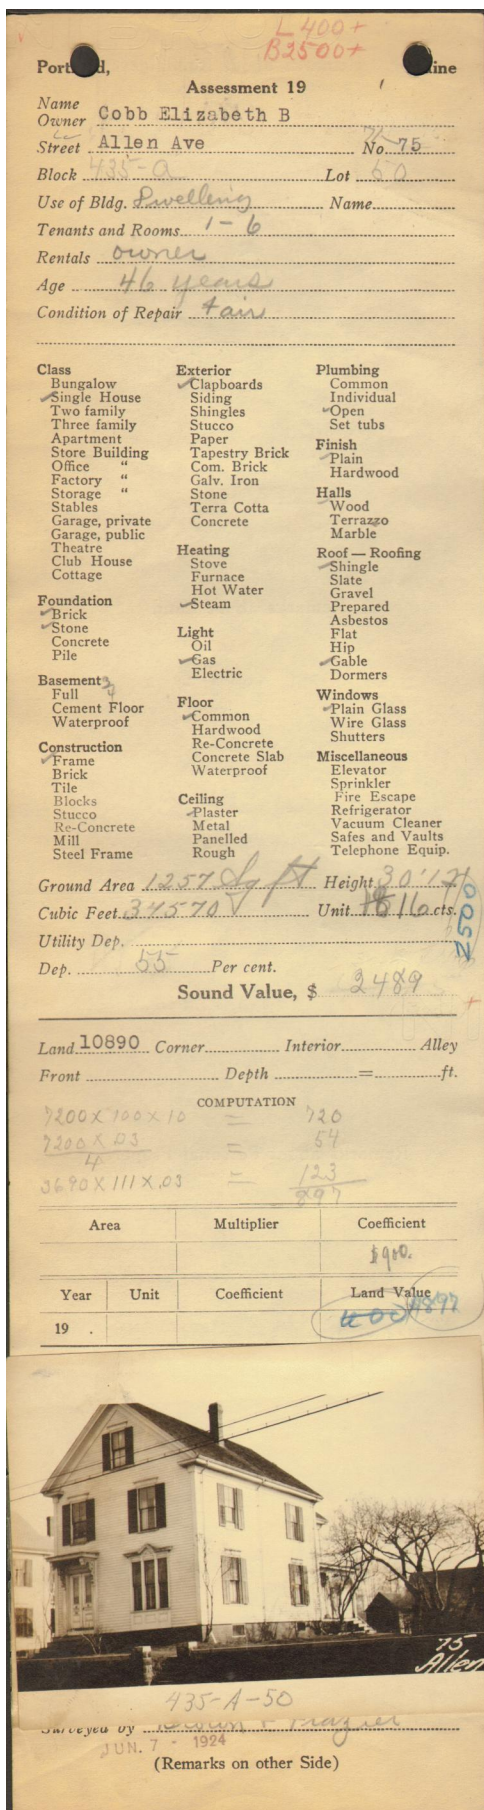 L 400+
B 2500+
Portland, Maine
Assessment 19
Name
Owner Cobb Elizabeth B
Street Allen Ave No. 75
Block 435-A Lot 50
Use of Bldg. Dwelling Name
Tenants and Rooms 1-6
Rentals owner
Age 46 years
Condition of Repair Fair
Class
Bungalow
Single House
Two family
Three family
Apartment
Store Building
Office "
Factory "
Storage "
Stables
Garage, private
Garage, public
Theatre
Club House
Cottage
Foundation
Brick
Stone
Concrete
Pile
Basement 3/4
Full
Cement Floor
Waterproof
Construction
Frame
Brick
Tile
Blocks
Stucco
Re-Concrete
Mill
Steel Frame
Exterior
Clapboards
Siding
Shingles
Stucco
Paper
Tapestry Brick
Com. Brick
Galv. Iron
Stone
Terra Cotta
Concrete
Heating
Stove
Furnace
Hot Water
Steam
Light
Oil
Gas
Electric
Floor
Common
Hardwood
Re-Concrete
Concrete Slab
Waterproof
Ceiling
Plaster
Metal
Panelled
Rough
Plumbing
Common
Individual
Open
Set tubs
Finish
Plain
Hardwood
Halls
Wood
Terrazzo
Marble
Roof — Roofing
Shingle
Slate
Gravel
Prepared
Asbestos
Flat
Hip
Gable
Dormers
Windows
Plain Glass
Wire Glass
Shutters
Miscellaneous
Elevator
Sprinkler
Fire Escape
Refrigerator
Vacuum Cleaner
Safes and Vaults
Telephone Equip.
Ground Area 1257 Sq ft Height 30'
Cubic Feet 34570 Unit 16 cts.
2500
Utility Dep.
Dep. 55 Per cent.
Sound Value, $ 2489
Land 10890 Corner Interior Alley
Front Depth = ft.
COMPUTATION
7200 X 100 X 10 = 720
7200 X .03 = 54
4
3690 X 111 X .03 = 123
897
Area Multiplier Coefficient
$900.
Year Unit Coefficient Land Value
19 . 400 897
75
Allen
435-A-50
Surveyed by Brown & Frazier
JUN. 7 - 1924
(Remarks on other Side)